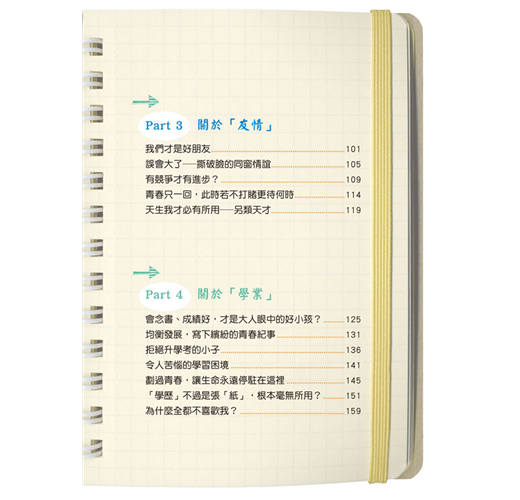 Part 3 關於「友情」
我們才是好朋友 101
誤會大了──撕破臉的同窗情誼 105
有競爭才有進步？ 109
青春只一回，此時若不打賭更待何時 114
天生我才必有所用──另類天才 119
Part 4 關於「學業」
會念書、成績好，才是大人眼中的好小孩？ 125
均衡發展，寫下繽紛的青春紀事 131
拒絕升學考的小子 136
令人苦惱的學習困境 141
劃過青春，讓生命永遠停駐在這裡 145
「學歷」不過是張「紙」，根本毫無所用？ 151
為什麼全都不喜歡我？ 159